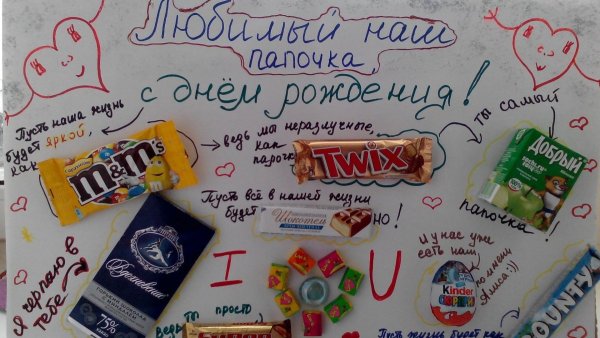 Любимый наш
папочка,
с днём рождения!
Пусть наша жизнь
будет яркой,
как
m&m's
ведь мы неразлучные,
как
парочка
TWIX
ты самый
Добрый
папочка!
Пусть всё в нашей жизни
будет
Шоколад
но!
Я черпаю в
тебе
Вдохновение
75%
I
U
и у нас уже
есть наш
Kinder
СЮРПРИЗ
по имени
Алиса:))
ведь
ты просто
Пусть жизнь будет как
BOUNTY